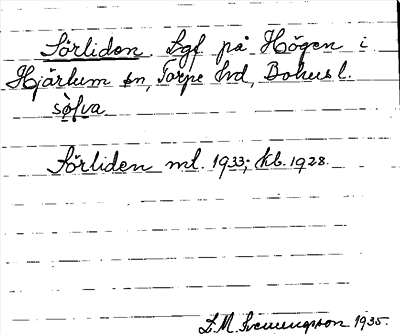 Sörliden. Lgf. på Högen i
Hjärtum sn, Torpe hd, Bohusl.
sö̀lva
Sörliden ml. 1933; kb. 1928.
D. M. Svenungsson 1935.